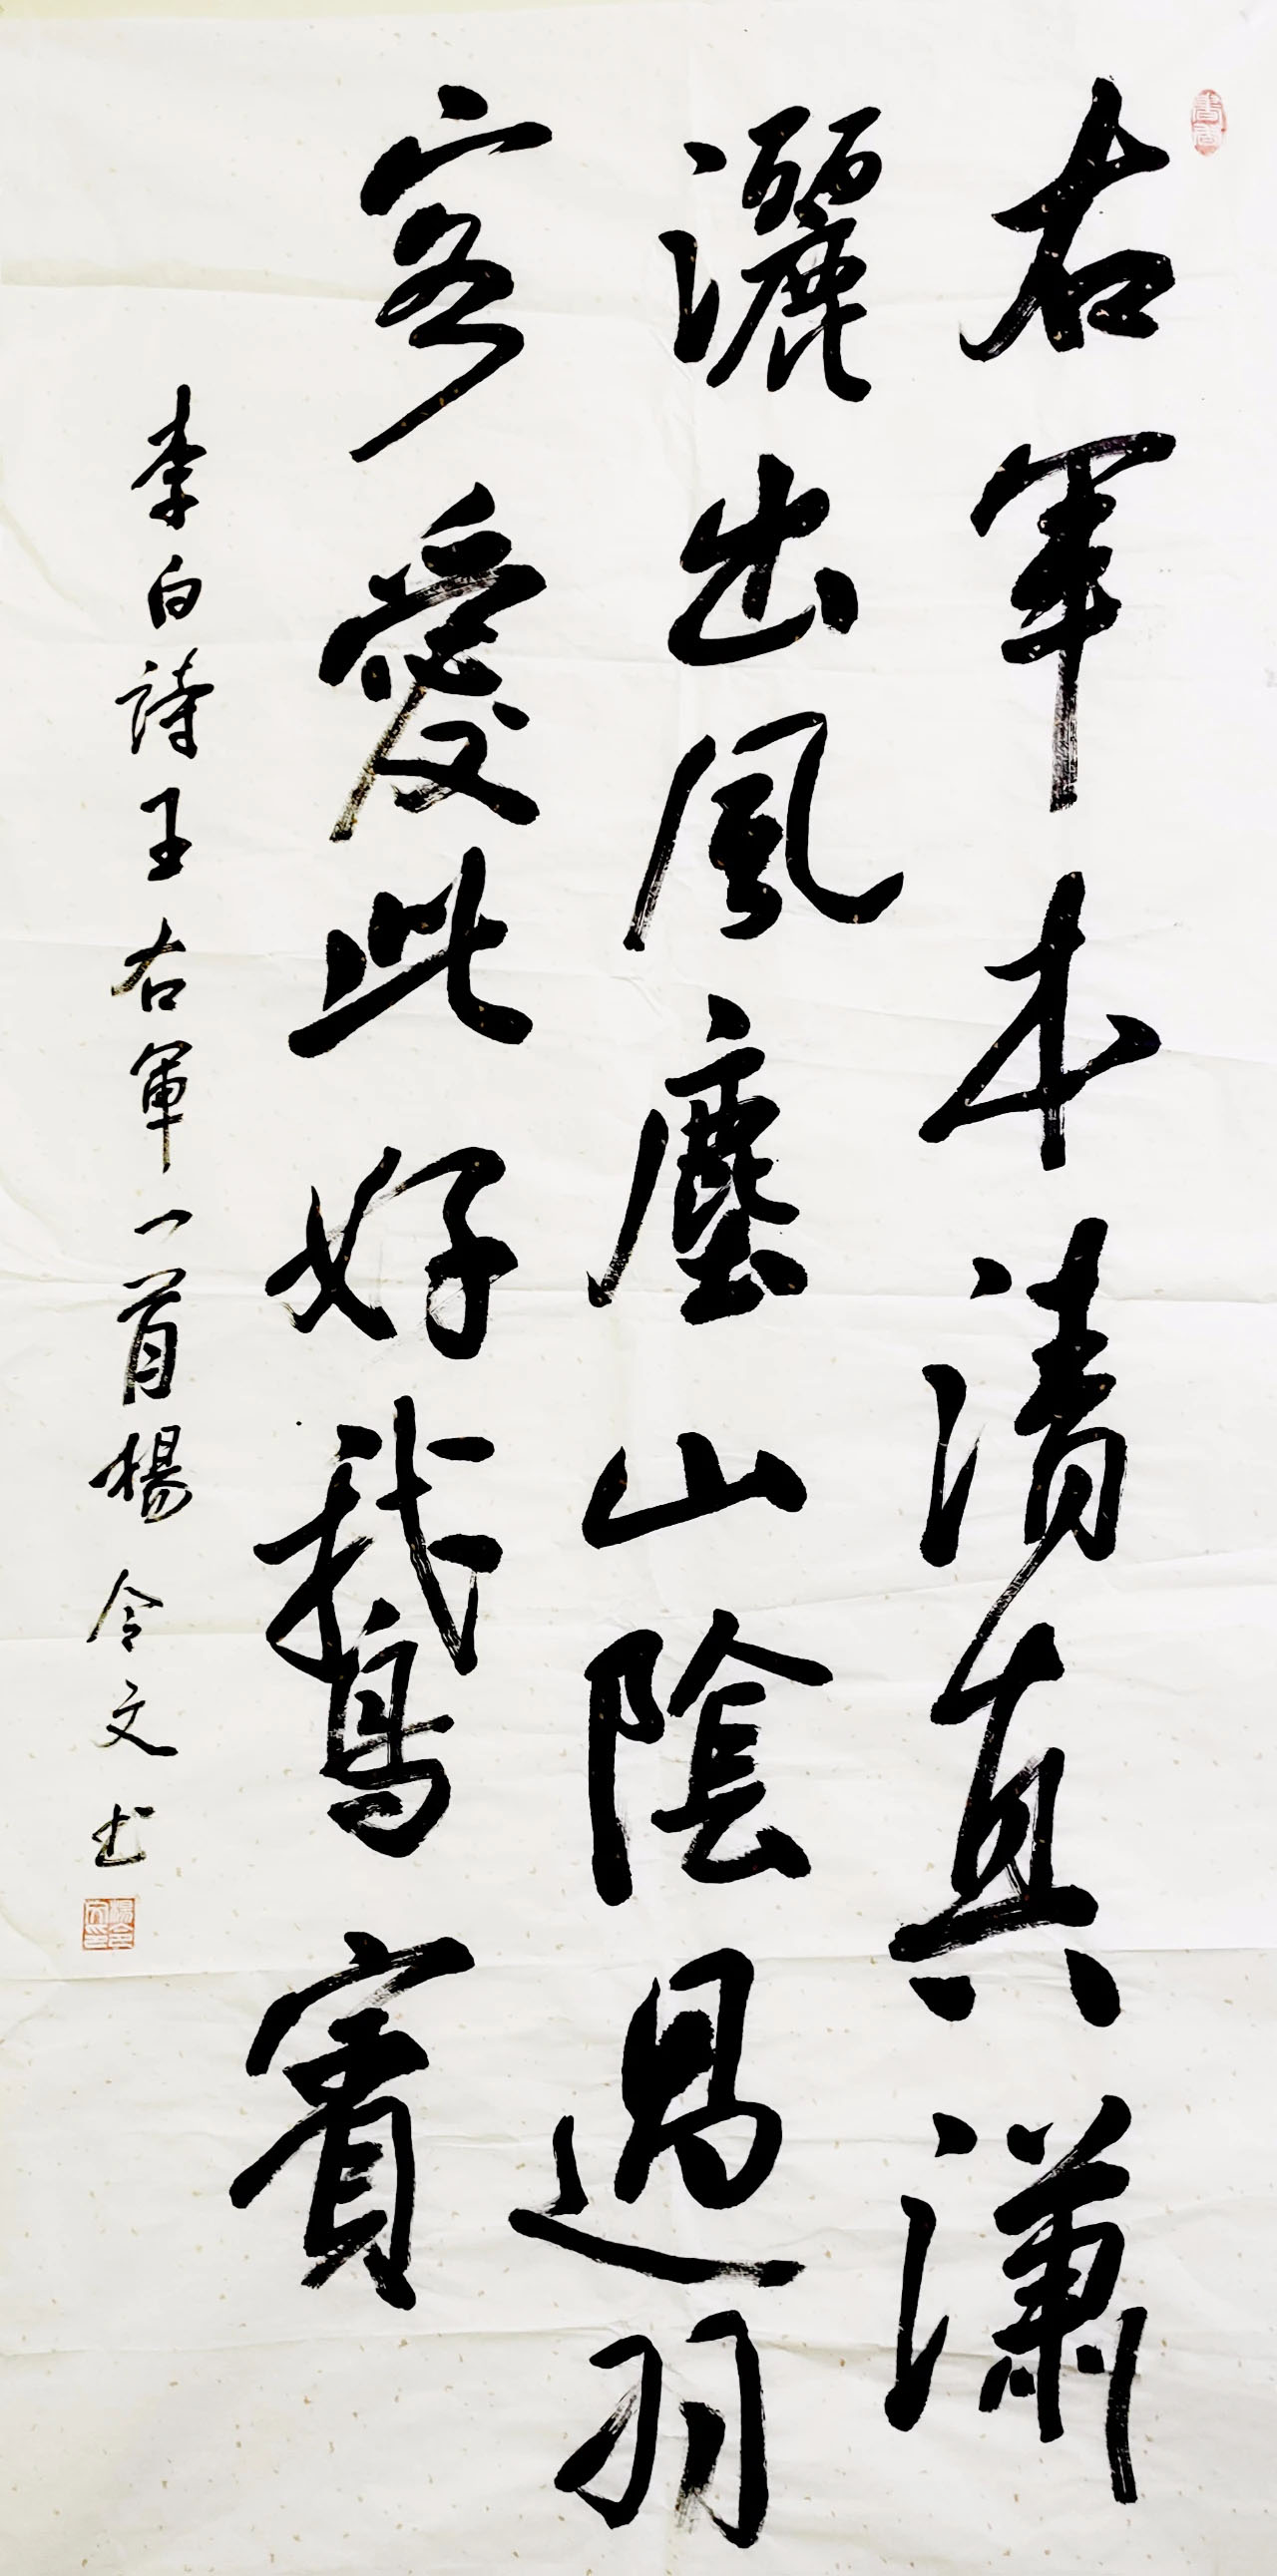 右軍本清真瀟
灑出風塵山陰過羽
客愛此好鵝賓
李白詩王右軍一首楊令文书
楊令文印